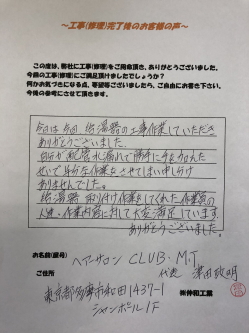 ～工事(修理)完了後のお客様の声～
この度は、弊社に工事(修理)をご用命頂き、ありがとうございました。
今回の工事(修理)にご満足頂けましたでしょうか？
何かお気づきになる点、要望等ございましたら、ご自由にお書き下さい。
今後の参考にさせて頂きます。
今日は今回 給湯器の工事作業していただき
ありがとうございました。
自分が配管水漏れで勝手に手を加えた
せいで余分な作業をさせてしまい申し分け
ありませんでした。
給湯器 取り付け作業をしてくれた作業員の
人達、作業内容に対して大変満足しています。
ありがとうございました。
お名前(屋号)
ヘアーサロン CLUB・M.T
代表 澤田政明
ご住所
㈱伸和工業
東京都多摩市和田1437-1
シャンポール1F